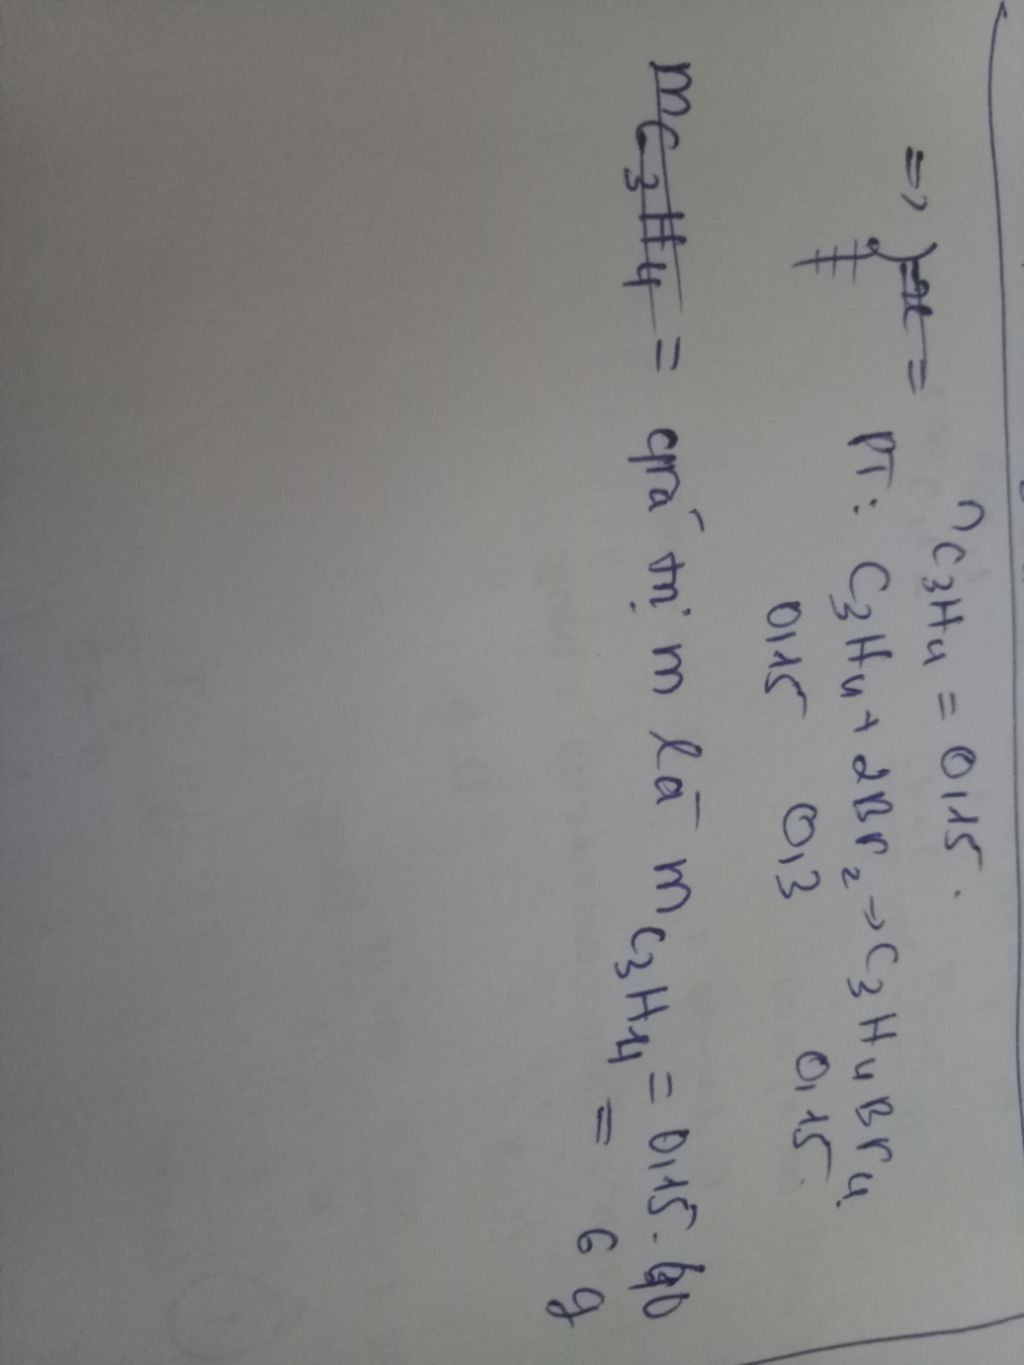 nC3H4 = 0,15.
=>
PT: C3H4 + 2Br2 → C3H4Br4
0,15 0,3 0,15
mC3H4 = giá trị m là mC3H4 = 0,15.40
= 6 g